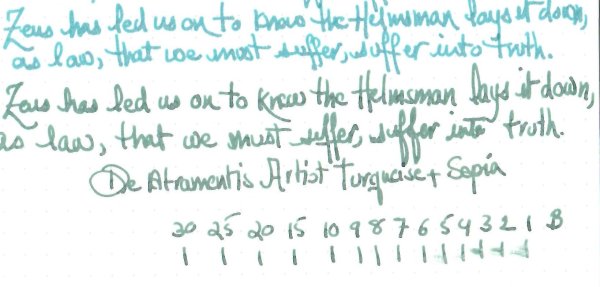 Zeus has led us on to know the Helmsman lays it down,
as law, that we must suffer, suffer into truth.
Zeus has led us on to know the Helmsman lays it down,
as law, that we must suffer, suffer into truth.
De Atramentis Artist Turquoise + Sepia
30 25 20 15 10 9 8 7 6 5 4 3 2 1 B